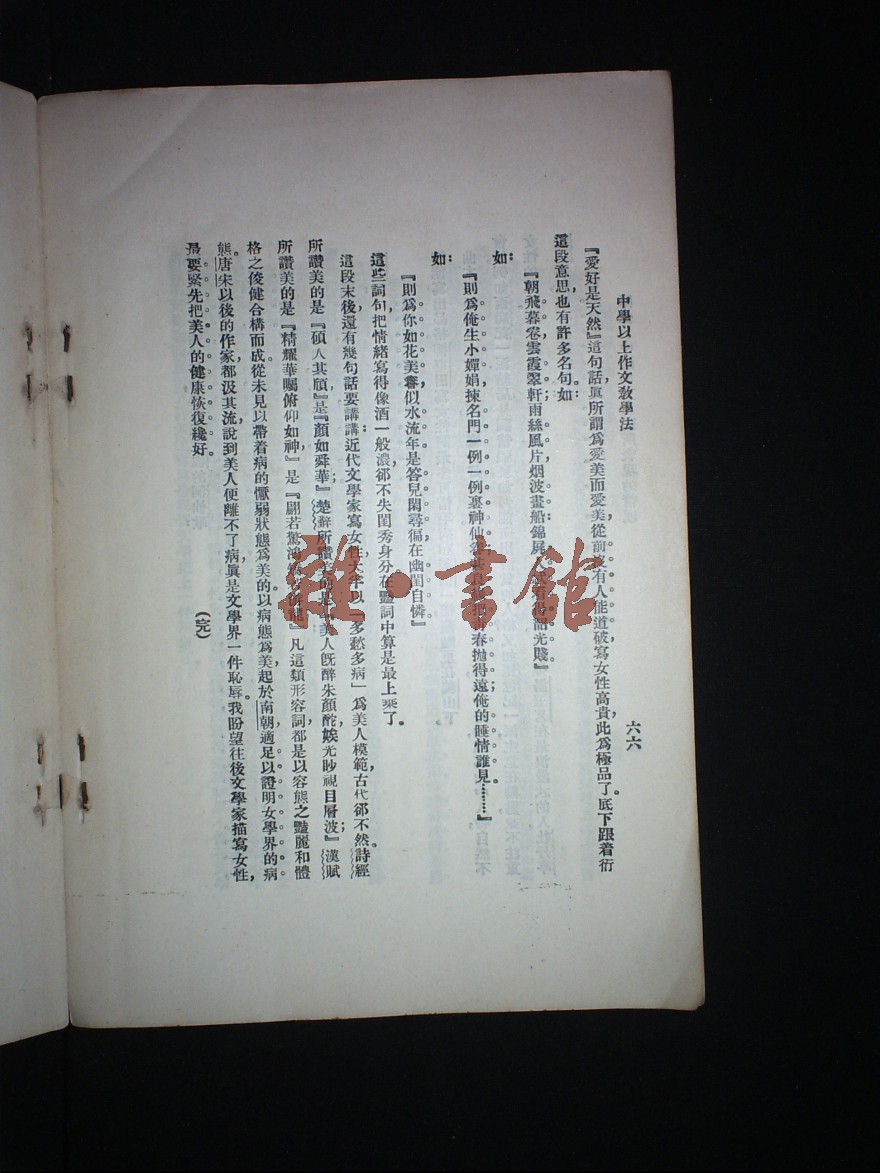 中學以上作文教學法
六六
『愛好是天然』這句話眞所謂爲愛美而愛美，從前沒有人能道破寫女性高貴此爲極品了。底下跟着衍
這段意思也有許多名句如：
『朝飛暮卷，雲霞翠軒；雨絲風片，烟波畫船；錦屏人忒看的韶光賤。』
如：
『則爲俺生小嬋娟，揀名門一例一例裏神仙眷。甚良緣把靑春拋得遠；俺的睡情誰見……』
如：
『則爲你如花美眷，似水流年；是答兒閑尋徧，在幽閨自憐。』
這些詞句，把情緒寫得像酒一般濃，卻不失閨秀身分，在豔詞中算是最上乘了。
這段末後，還有幾句話要講講：近代文學家寫女性大半以『多愁多病』爲美人模範，古代卻不然。詩經
所讚美的是『碩人其頎，』是『顏如舜華；』楚辭所讚美的是『美人旣醉朱顏酡，娭光眇視目層波；』漢賦
所讚美的是『精耀華矚俯仰如神，』是『翩若驚鴻矯若游龍。』凡這類形容詞都是以容態之豔麗和體
格之俊健合構而成從未見以帶着病的懨弱狀態爲美的以病態爲美起於南朝，適足以證明女學界的病
態。唐宋以後的作家都汲其流，說到美人便離不了病，眞是文學界一件恥辱。我盼望往後文學家描寫女性，
最要緊先把美人的健康恢復纔好。
（完）
雜·書館